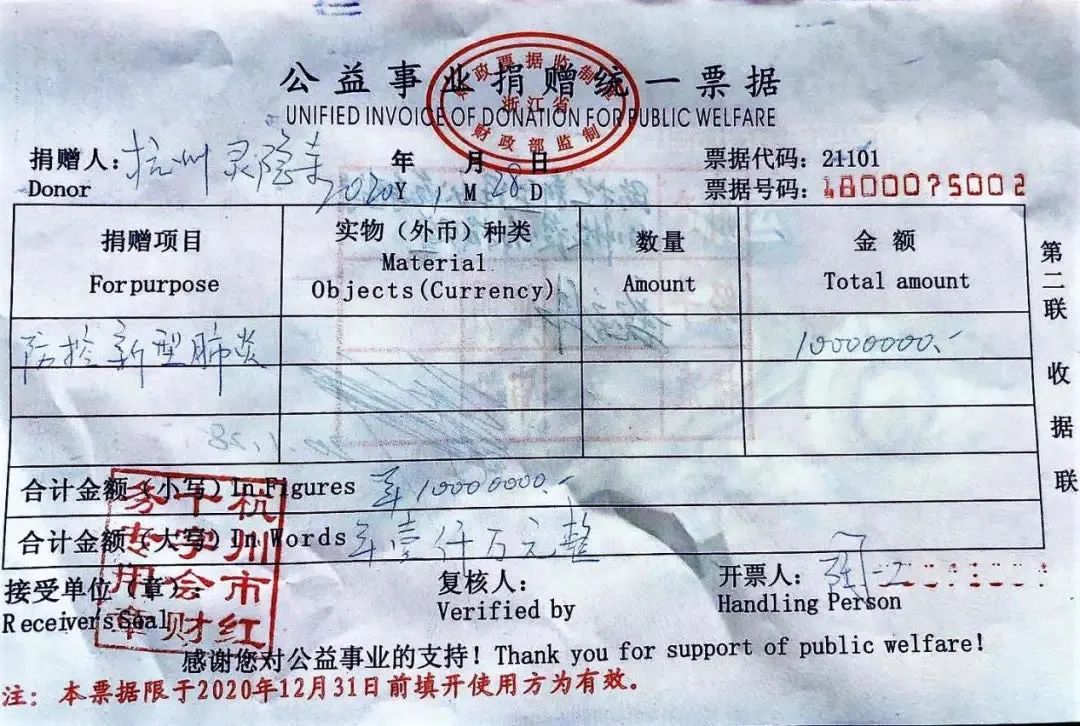 公益事业捐赠统一票据
UNIFIED INVOICE OF DONATION FOR PUBLIC WELFARE
财政票据监制章
浙江省
财政部监制
捐赠人：杭州灵隐寺 年 月 日 票据代码：21101
Donor 2020 Y 1 M 28 D 票据号码：1800075002
捐赠项目 实物（外币）种类 数量 金额
Forpurpose Material Objects(Currency) Amount Total amount
防控新型肺炎 10000000.-
合计金额（小写）In Figures 10000000.-
合计金额（大写）In Words 壹仟万元整
第二联 收据联
接受单位（章）： 复核人： 开票人：
Receivers Seal Verified by Handling Person
杭州市红十字会财务专用章
感谢您对公益事业的支持！Thank you for support of public welfare!
注：本票据限于2020年12月31日前填开使用方为有效。